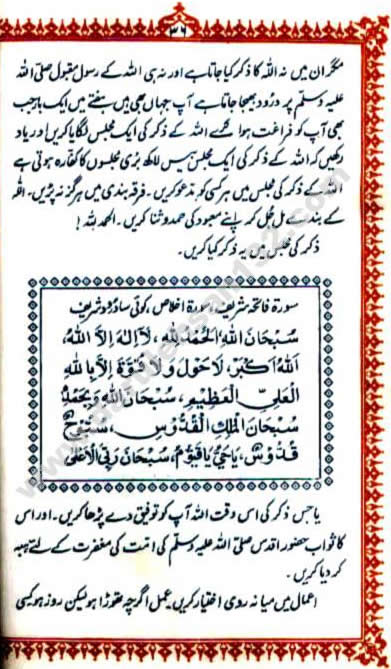 ۳۶
مگر ان میں نہ اللہ کا ذکر کیا جاتا ہے اور نہ ہی اللہ کے رسول مقبول صلی اللہ
علیہ وسلم پر درود بھیجا جاتا ہے آپ جہاں بھی ہیں ہفتے میں ایک بار جب
بھی آپ کو فراغت ہو اللہ کے ذکر کی ایک مجلس لگایا کریں اور یاد
رکھیں کہ اللہ کے ذکر کی ایک مجلس بیس لاکھ بری مجلسوں کا کفارہ ہوتی ہے
اللہ کے ذکر کی مجلس میں ہر کسی کو مدعو کریں۔ فرقہ بندی میں ہرگز نہ پڑیں۔ اللہ
کے بندے مل جل کر اپنے معبود کی حمد و ثنا کریں۔ الحمد للہ!
ذکر کی مجلس میں یہ ذکر کیا کریں۔
سورۃ فاتحہ شریف، سورۃ اخلاص، کوئی سا درود شریف
سُبْحَانَ اللهِ، اَلْحَمْدُ لِلّٰهِ، لَآ اِلٰهَ اِلَّا اللهُ،
اَللهُ اَكْبَرُ، لَا حَوْلَ وَلَا قُوَّةَ اِلَّا بِاللهِ
الْعَلِيِّ الْعَظِيْمِ، سُبْحَانَ اللهِ وَبِحَمْدِهٖ
سُبْحَانَ الْمَلِكِ الْقُدُّوْسِ، سُبُّوْحٌ
قُدُّوْسٌ، يَا حَيُّ يَا قَيُّوْمُ، سُبْحَانَ رَبِّيَ الْاَعْلٰى
یا جس ذکر کی اس وقت اللہ آپ کو توفیق دے پڑھا کریں۔ اور اس
کا ثواب حضور اقدس صلی اللہ علیہ وسلم کی امت کی مغفرت کے لئے ہبہ
کر دیا کریں۔
اعمال میں میانہ روی اختیار کریں عمل اگرچہ تھوڑا ہو لیکن روز ہو کسی